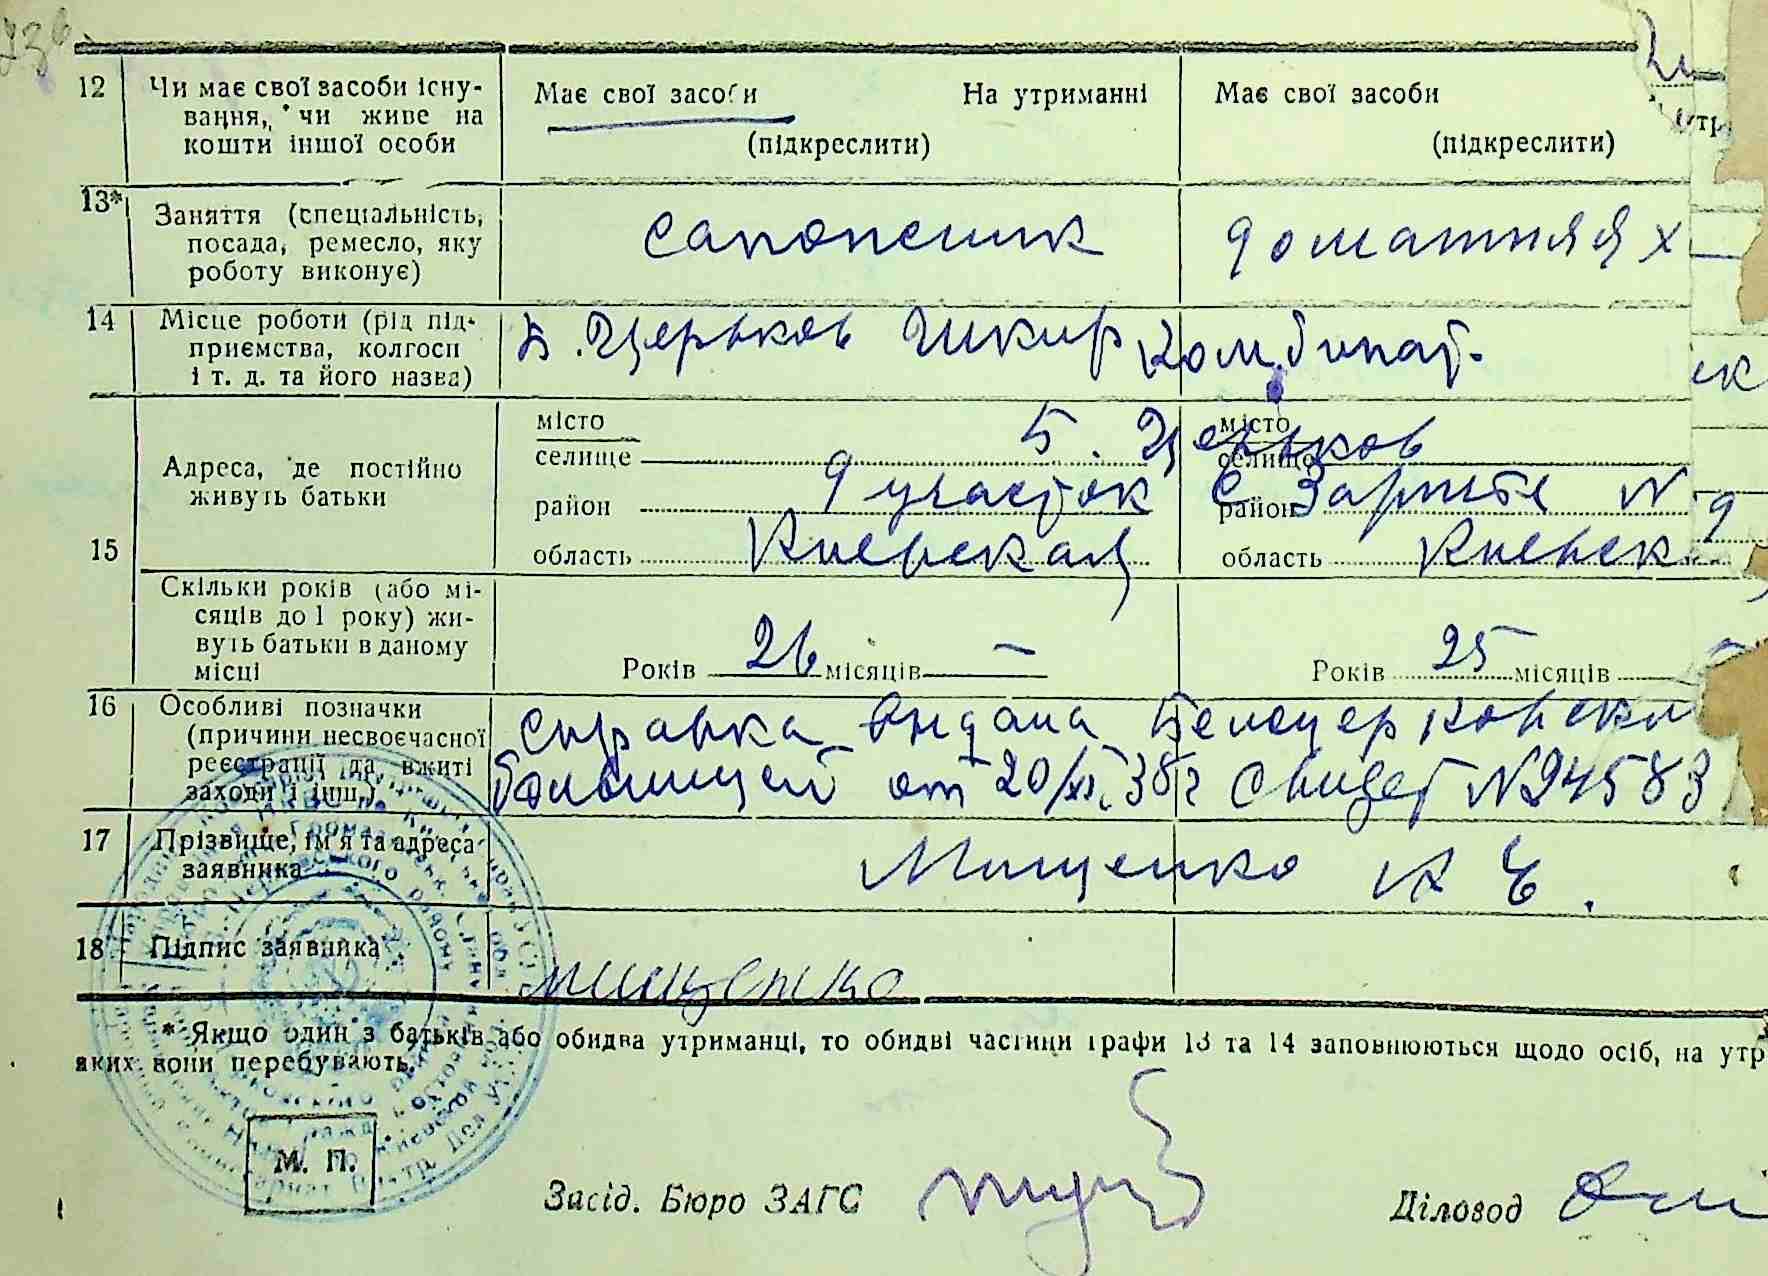 12 Чи має свої засоби існу- Має свої засоби На утриманні Має свої засоби
вання, чи живе на
кошти іншої особи (підкреслити) (підкреслити)
13* Заняття (спеціальність, сапожник домашняя х
посада, ремесло, яку
роботу виконує)
14 Місце роботи (рід під- Б. Церьков Шкир Комбинат.
приємства, колгосп
і т. д. та його назва)
15 Адреса, де постійно живуть батьки
місто
селище Б. Церьков місто селище
район 9 участок район Заричье N 9
область Киевская область Киевск.
Скільки років (або мі-
сяців до 1 року) жи-
вуть батьки в даному
місці Років 26 місяців — Років 25 місяців —
16 Особливі позначки справка видана Белоцерковской
(причини несвоєчасної больницей от 20/XI. 38 г Свидет N 24583
реєстрації та вжиті
заходи і інш.)
17 Прізвище, ім'я та адреса Мищенко А Е.
заявника
18 Підпис заявника Мищенко
* Якщо один з батьків або обидва утриманці, то обидві частини графи 13 та 14 заповнюються щодо осіб, на утр
яких вони перебувають.
М. П.
Засід. Бюро ЗАГС Діловод